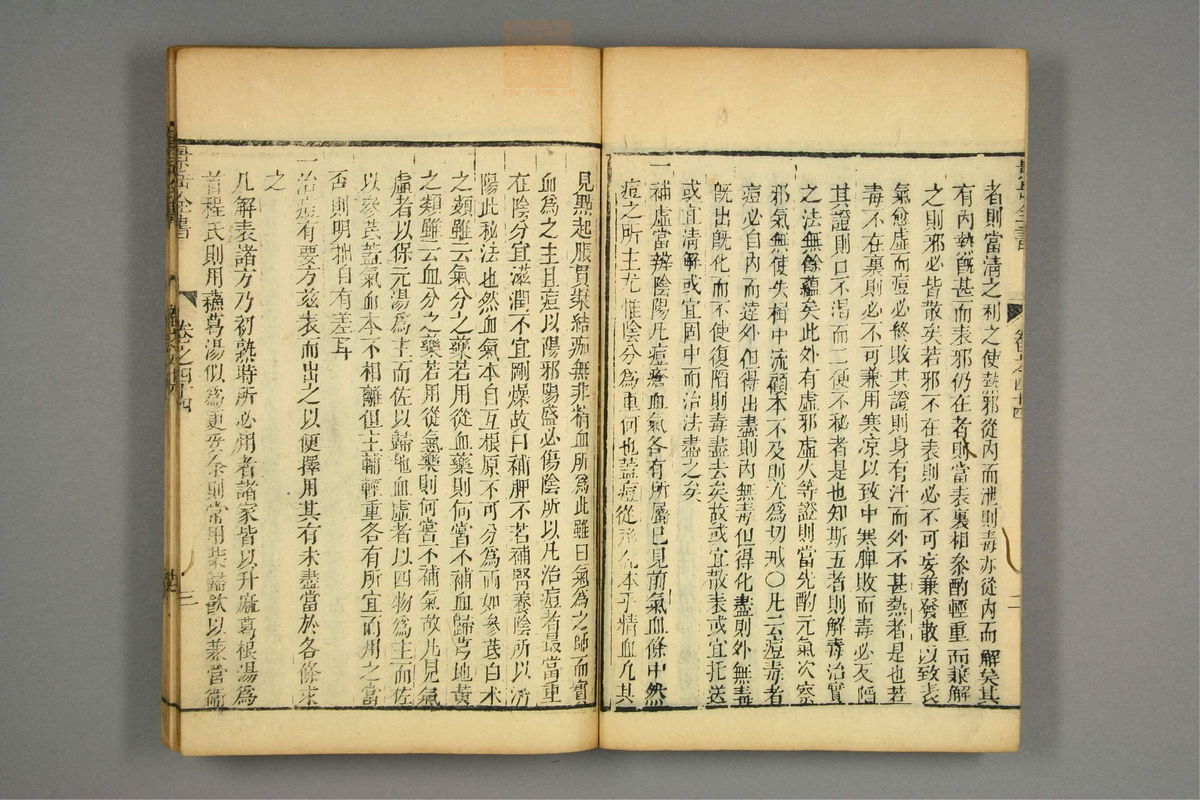 者則當清之利之使熱邪從內而泄則毒亦從內而解矣其
有內熱旣甚而表邪仍在者則當表裏相參酌輕重而兼解
之則邪必皆散矣若邪不在表則必不可妄兼發散以致表
氣愈虛而痘必終敗其證則身有汗而外不甚熱者是也若
毒不在裏則必不可兼用寒凉以致中寒脾敗而毒必反陷
其證則口不渴而二便不秘者是也知斯五者則解毒治實
之法無餘蘊矣此外有虛邪虛火等證則當先酌元氣次察
邪氣無使失楫中流顧本不及則尤為切戒○凡云痘毒者
痘必自內而達外但得出盡則內無毒但得化盡則外無毒
旣出旣化而不使復陷則毒盡去矣故或宜散表或宜托送
或宜清解或宜固中而治法盡之矣
一補虛當辨陰陽凡痘瘡血氣各有所屬已見前氣血條中然
痘之所主尤惟陰分為重何也蓋痘從形化本乎精血凡其
見點起脹貫漿結痂無非精血所為此雖曰氣為之帥而實
血為之主且痘以陽邪陽盛必傷陰所以凡治痘者最當重
在陰分宜滋潤不宜剛燥故曰補脾不若補腎養陰所以濟
陽此秘法也然血氣本自互根原不可分為兩如參芪白术
之類雖云氣分之藥若用從血藥則何嘗不補血歸芎地黃
之類雖云血分之藥若用從氣藥則何嘗不補氣故凡見氣
虛者以保元湯為主而佐以歸地血虛者以四物為主而佐
以參芪蓋氣血本不相離但主輔輕重各有所宜而用之當
否則明拙自有差耳
一治痘有要方茲表而出之以便擇用其有未盡當於各條求
之
凡解表諸方乃初熱時所必用者諸家皆以升麻葛根湯為
首程氏則用蘇葛湯似為更妥余則常用柴歸飲以兼營衛
景岳全書
卷之四十四
三